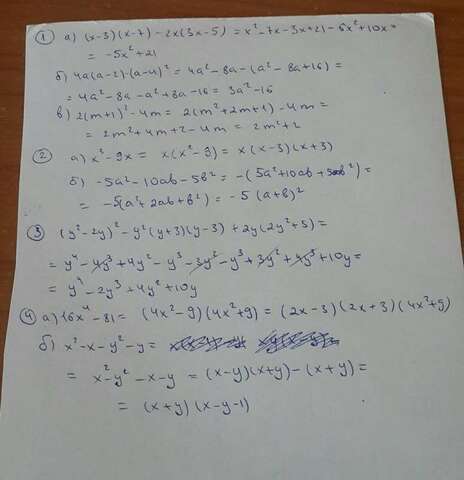 ① а) (x-3)(x-7) - 2x(3x-5) = x²-7x-3x+21-6x²+10x=
= -5x²+21
б) 4a(a-2)-(a-4)² = 4a²-8a-(a²-8a+16)=
= 4a²-8a-a²+8a-16= 3a²-16
в) 2(m+1)²-4m= 2(m²+2m+1)-4m=
= 2m²+4m+2-4m= 2m²+2
② а) x³-9x= x(x²-9)= x(x-3)(x+3)
б) -5a²-10ab-5b²= -(5a²+10ab+5b²)=
= -5(a²+2ab+b²)= -5(a+b)²
③ (y²-2y)²-y²(y+3)(y-3)+2y(2y²+5)=
= y⁴-4y³+4y²-y³-3y²-y³+3y²+4y³+10y=
= y⁴-2y³+4y²+10y
④ а) 16x⁴-81= (4x²-9)(4x²+9)= (2x-3)(2x+3)(4x²+9)
б) x²-x-y²-y=
= x²-y²-x-y = (x-y)(x+y)-(x+y)=
= (x+y)(x-y-1)